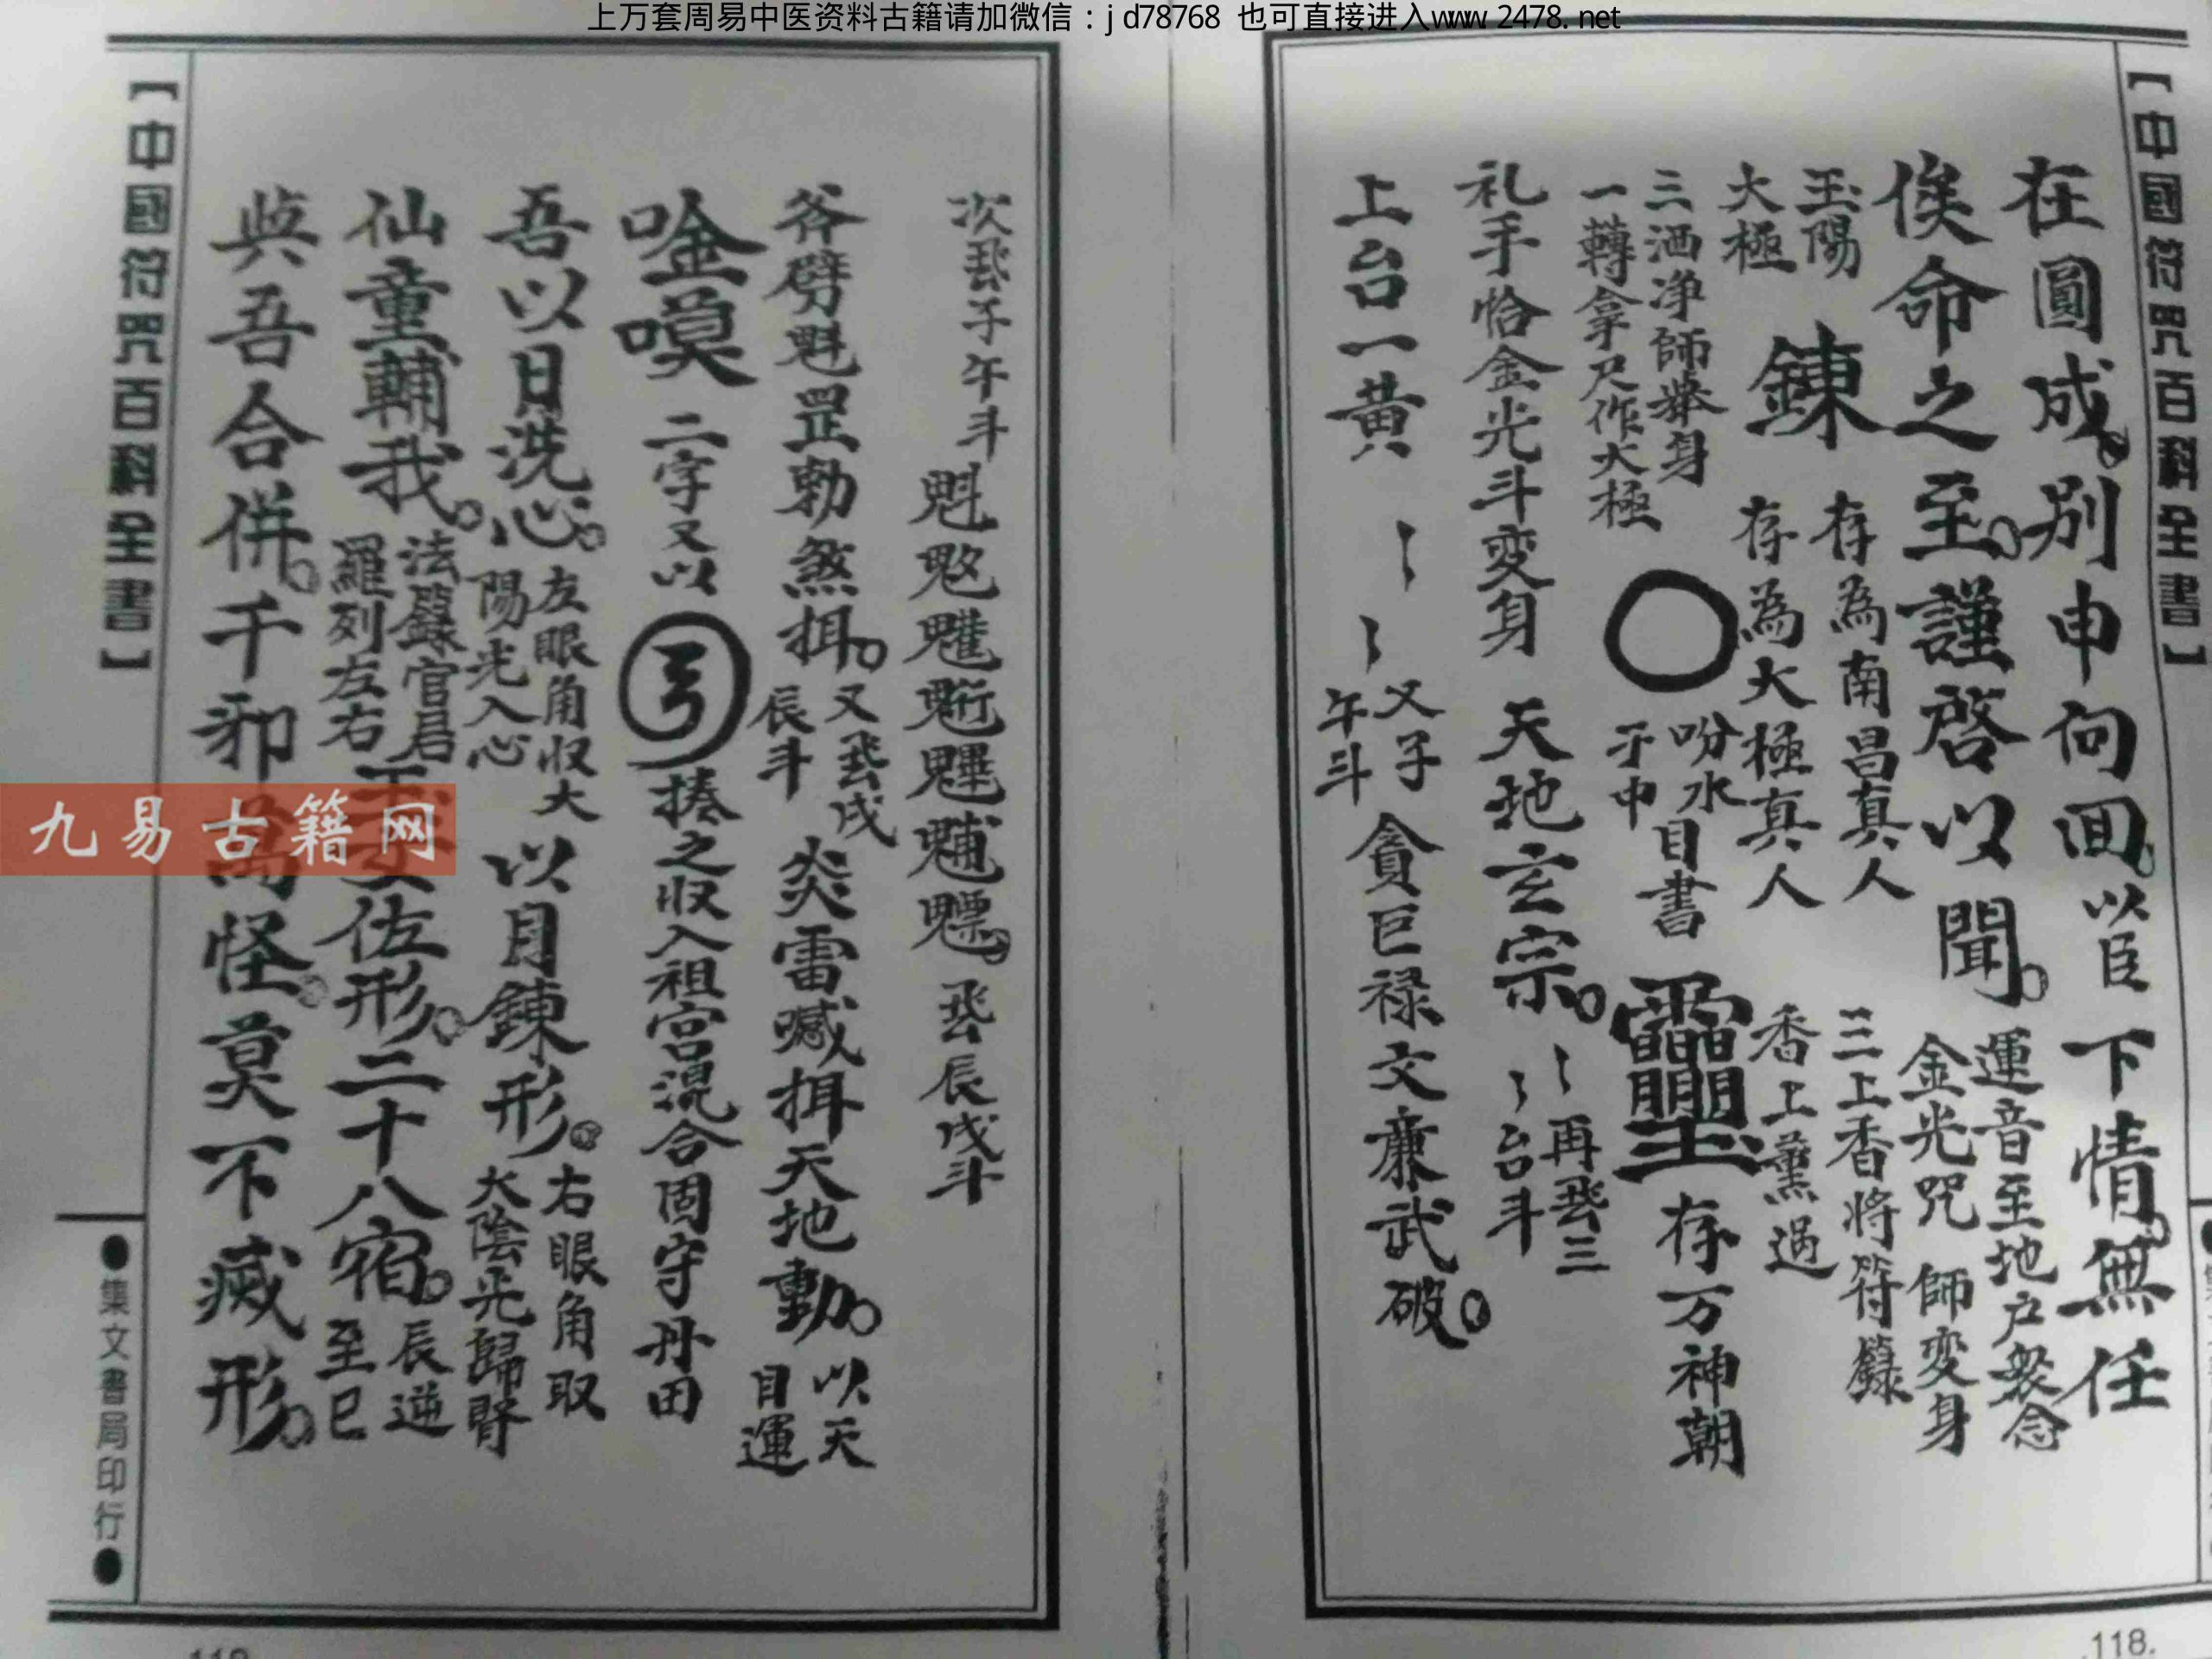 上万套周易中医资料古籍请加微信：jd78768 也可直接进入www.2478.net
【中國符咒百科全書】
在圓成。別申向回。以臣下情。無任
俟命之至。謹啓以聞。運音至地户衆念
金光咒 師变身
玉陽
大極
鍊
存為南昌真人
存為大極真人
三上香将符籙
香上薰過
三洒净師舉身
一轉拿尺作大極
吩水
于中
目書
靈
存万神朝
礼手恰金光斗变身
天地玄宗。
再飛三
台斗
上台一黄
又子
午斗
貪巨禄文廉武破。
118.
次飛子午斗
魁𩲃䰢魓魒。飛辰戌斗
斧劈魁罡勅煞揖。又飛戌
辰斗
炎雷喊揖天地動。以天
目運
唫嘆
二字又以
揍之収入祖宫混合固守丹田
吾以日洗心。左眼角収大
陽光入心
以月鍊形。右眼角取
大陰光歸腎
仙童輔我。法籙官君
羅列左右
玉女佐形。二十八宿。辰逆
至巳
與吾合併。千邪萬怪。莫不滅形。
【中國符咒百科全書】
●集文書局印行●
九易古籍网